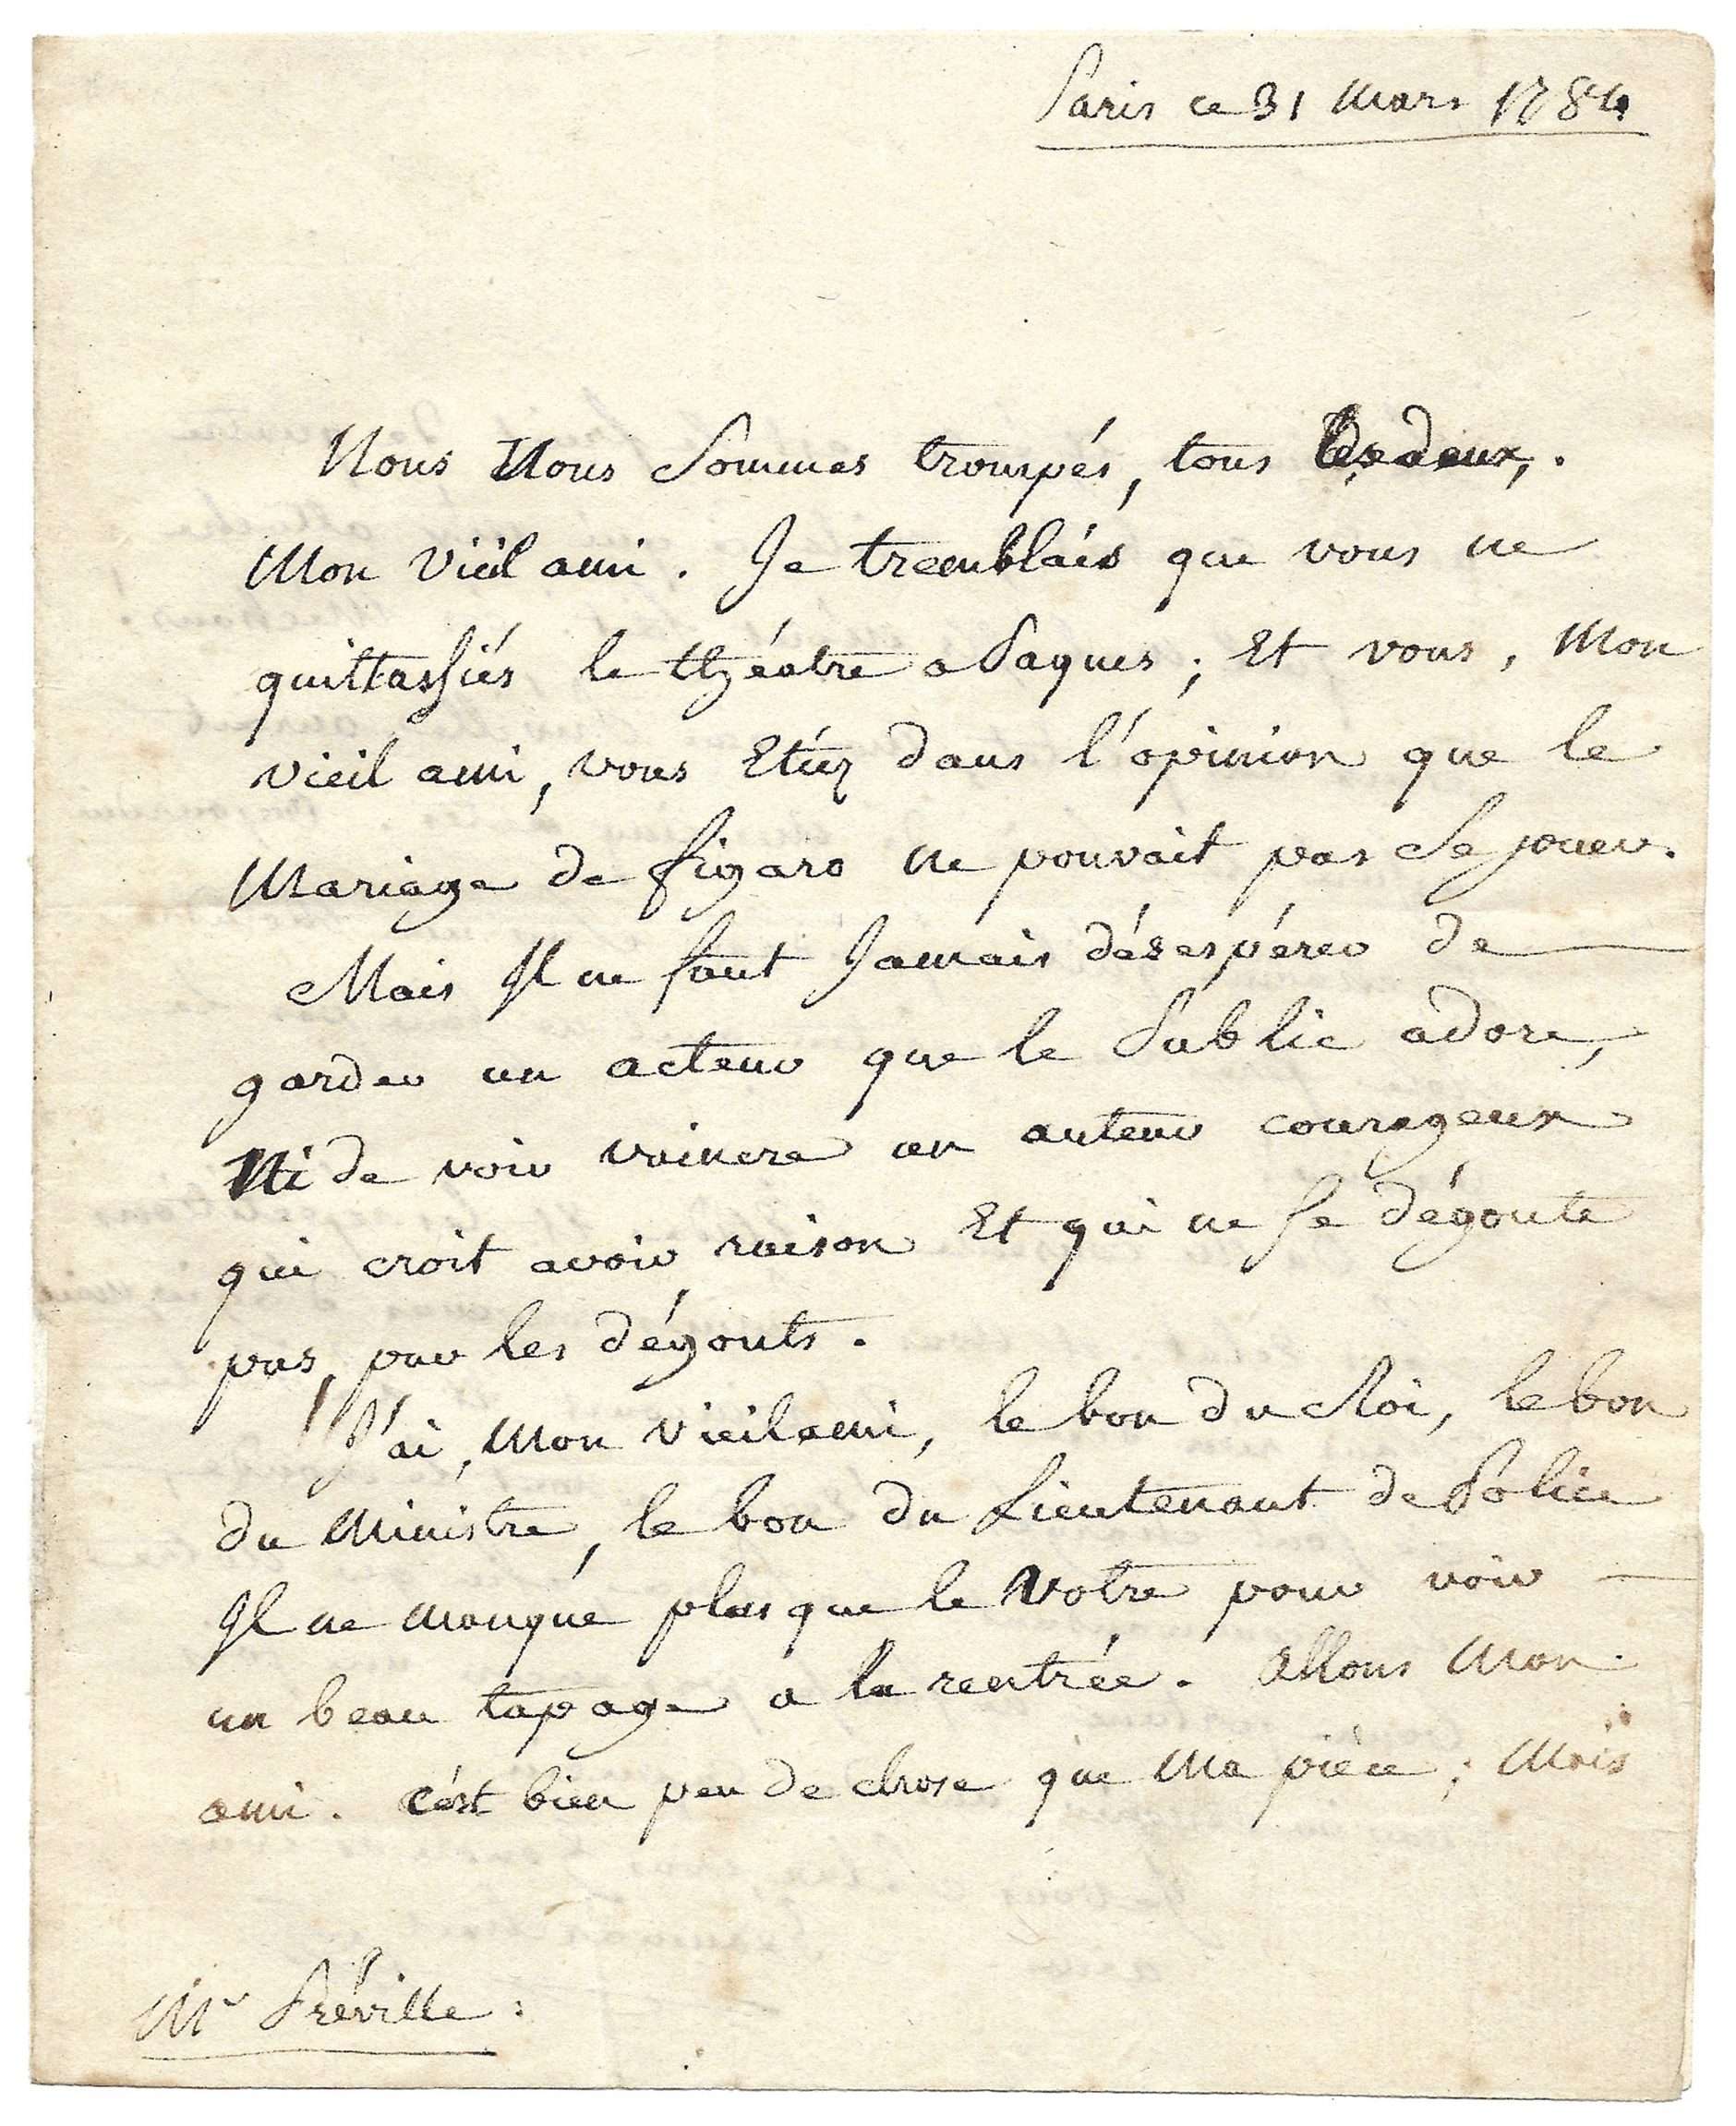 Paris ce 31 Mars 1784
Nous Nous Sommes trompés, tous les deux,.
Mon Vieil ami. Je tremblais que vous ne
quittassiés le théatre a Paques; Et vous, Mon
vieil ami, vous Etiez dans l'opinion que le
Mariage de figaro ne pouvait pas Se jouer.
Mais Il ne faut Jamais désespérer de
garder un acteur que le Public adore,
Ni de voir vaincre un auteur courageux
qui croit avoir raison Et qui ne Se dégoute
pas, par les dégouts.
J'ai, Mon vieil ami, le bon du Roi, le bon
du Ministre, le bon du Lieutenant de Police
Il ne manque plus que le Votre pour voir
un beau tapage a la rentrée. Allons Mon
ami. c'est bien peu de chose que Ma pièce; Mais
Mr Préville: